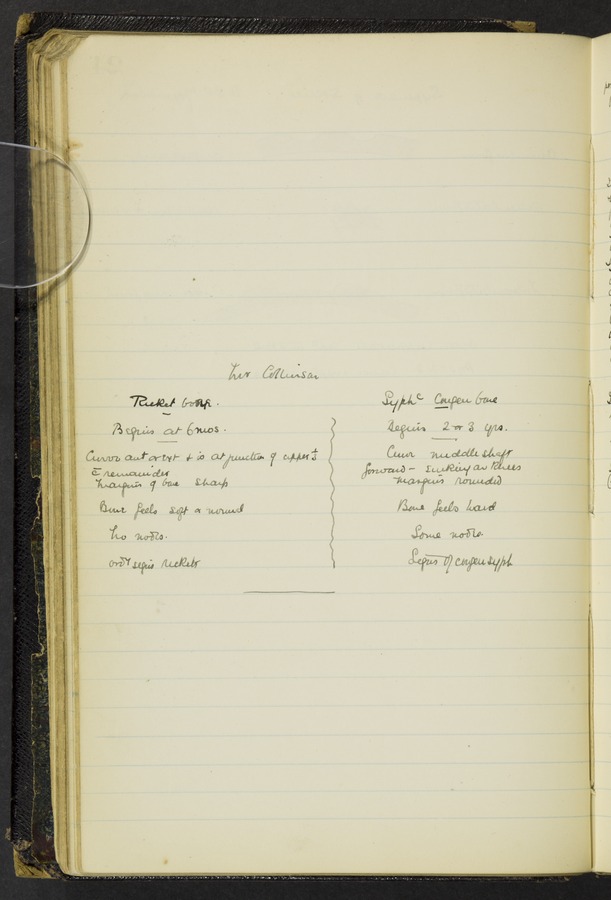 Collinson
Ricket bone.
Begins at 6 mos.
Curve ant or ext & is at junction of upper ⅓
c̄ remainder
Margin of bone sharp
Bone feels soft or normal
No nodes.
ordy signs rickets
Syphc Congen bone
Begins 2 or 3 yrs.
Curve middle shaft
forward –
margins rounded
Bone feels hard
Some nodes
Signs of congen syph